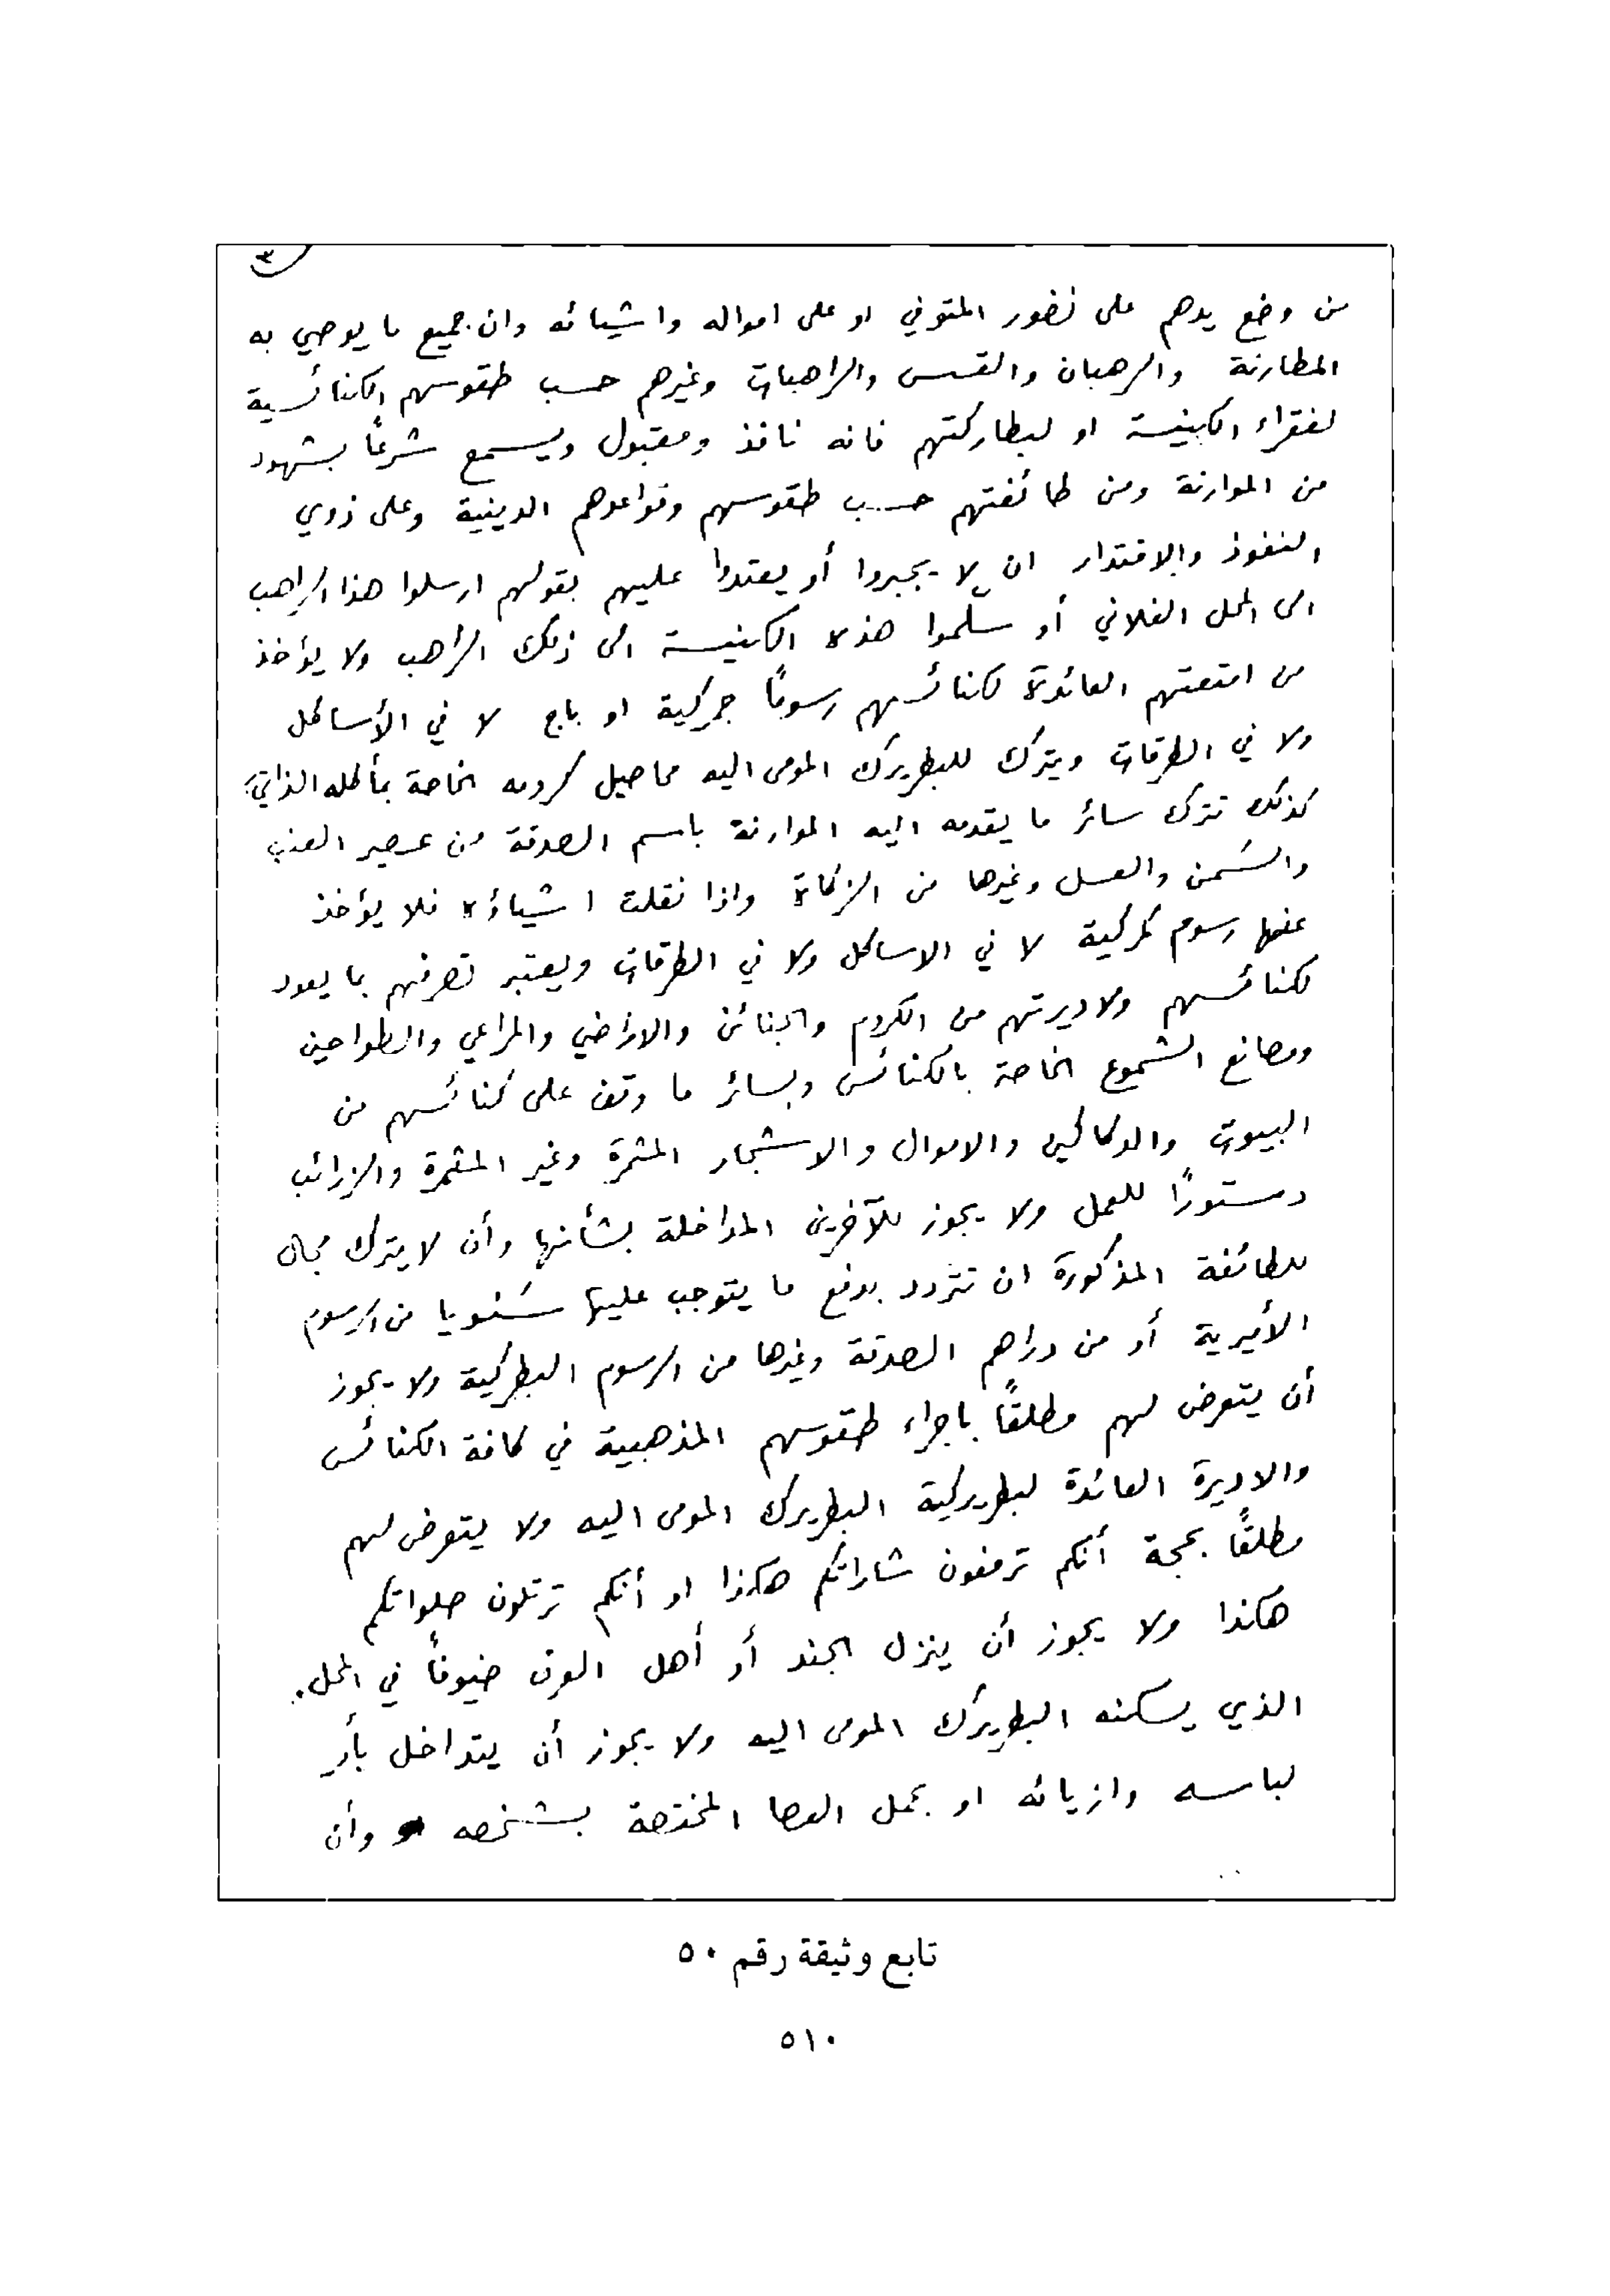 ٣
من وضع يدهم على نضور المتوفي او على امواله واشيائه وان جميع ما يوصي به
المطارنة والرهبان والقسس والراهبات وغيرهم حسب طقوسهم الكنائسية
لفقراء الكنيسة او لبطاركتهم فانه نافذ ومقبول ويسمع شرعًا بشهود
من الموارنة ومن طائفتهم حسب طقوسهم وقواعدهم الدينية وعلى ذوي
النفوذ والاقتدار ان لا يجبروا أو يعتدوا عليهم بقولهم ارسلوا هذا الراهب
الى المحل الفلاني أو سلّموا هذه الكنيسة الى ذلك الراهب ولا يؤخذ
من امتعتهم العائدة لكنائسهم رسومًا جمركية او باج لا في الأساكل
ولا في الطرقات ويترك للبطريرك المومى اليه محاصيل كرومه الخاصة بمأكله الذاتي
كذلك تترك سائر ما يقدمه اليه الموارنة باسم الصدقة من عصير العنب
والسَمن والعسل وغيرها من الزكاة واذا نقلت اشياؤه فلا يؤخذ
عنها رسوم كمركية لا في الاساكل ولا في الطرقات ويعتبر تصرفهم بما يعود
لكنائسهم ولاديرتهم من الكروم والجنائن والاراضي والمراعي والطواحين
ومصانع الشموع الخاصة بالكنائس وبسائر ما وقف على كنائسهم من
البيوت والدكاكين والاموال والاشجار المثمرة وغير المثمرة والزرائب
دستورًا للعمل ولا يجوز للآخرين المداخلة بشأنها وأن لا يترك مجال
للطائفة المذكورة ان تتردد بدفع ما يتوجب عليها سَنويا من الرسوم
الأميرية أو من دراهم الصدقة وغيرها من الرسوم البطركية ولا يجوز
أن يتعرض لهم مطلقًا باجراء طقوسهم المذهبية في كافة الكنائس
والاديرة العائدة لبطريركية البطريرك المومى اليه ولا يتعرض لهم
مطلقًا بحجة أنكم ترفعون شاراتكم هكذا او أنكم ترتلون صلواتكم
هكذا ولا يجوز أن ينزل الجند أو أهل العرف ضيوفًا في المحل.
الذي يسكنه البطريرك المومى اليه ولا يجوز أن يتداخل بأمر
لباسه وازيائه او بحمل العصا المختصة بشخصه وأن
تابع وثيقة رقم ٥٠
٥١٠